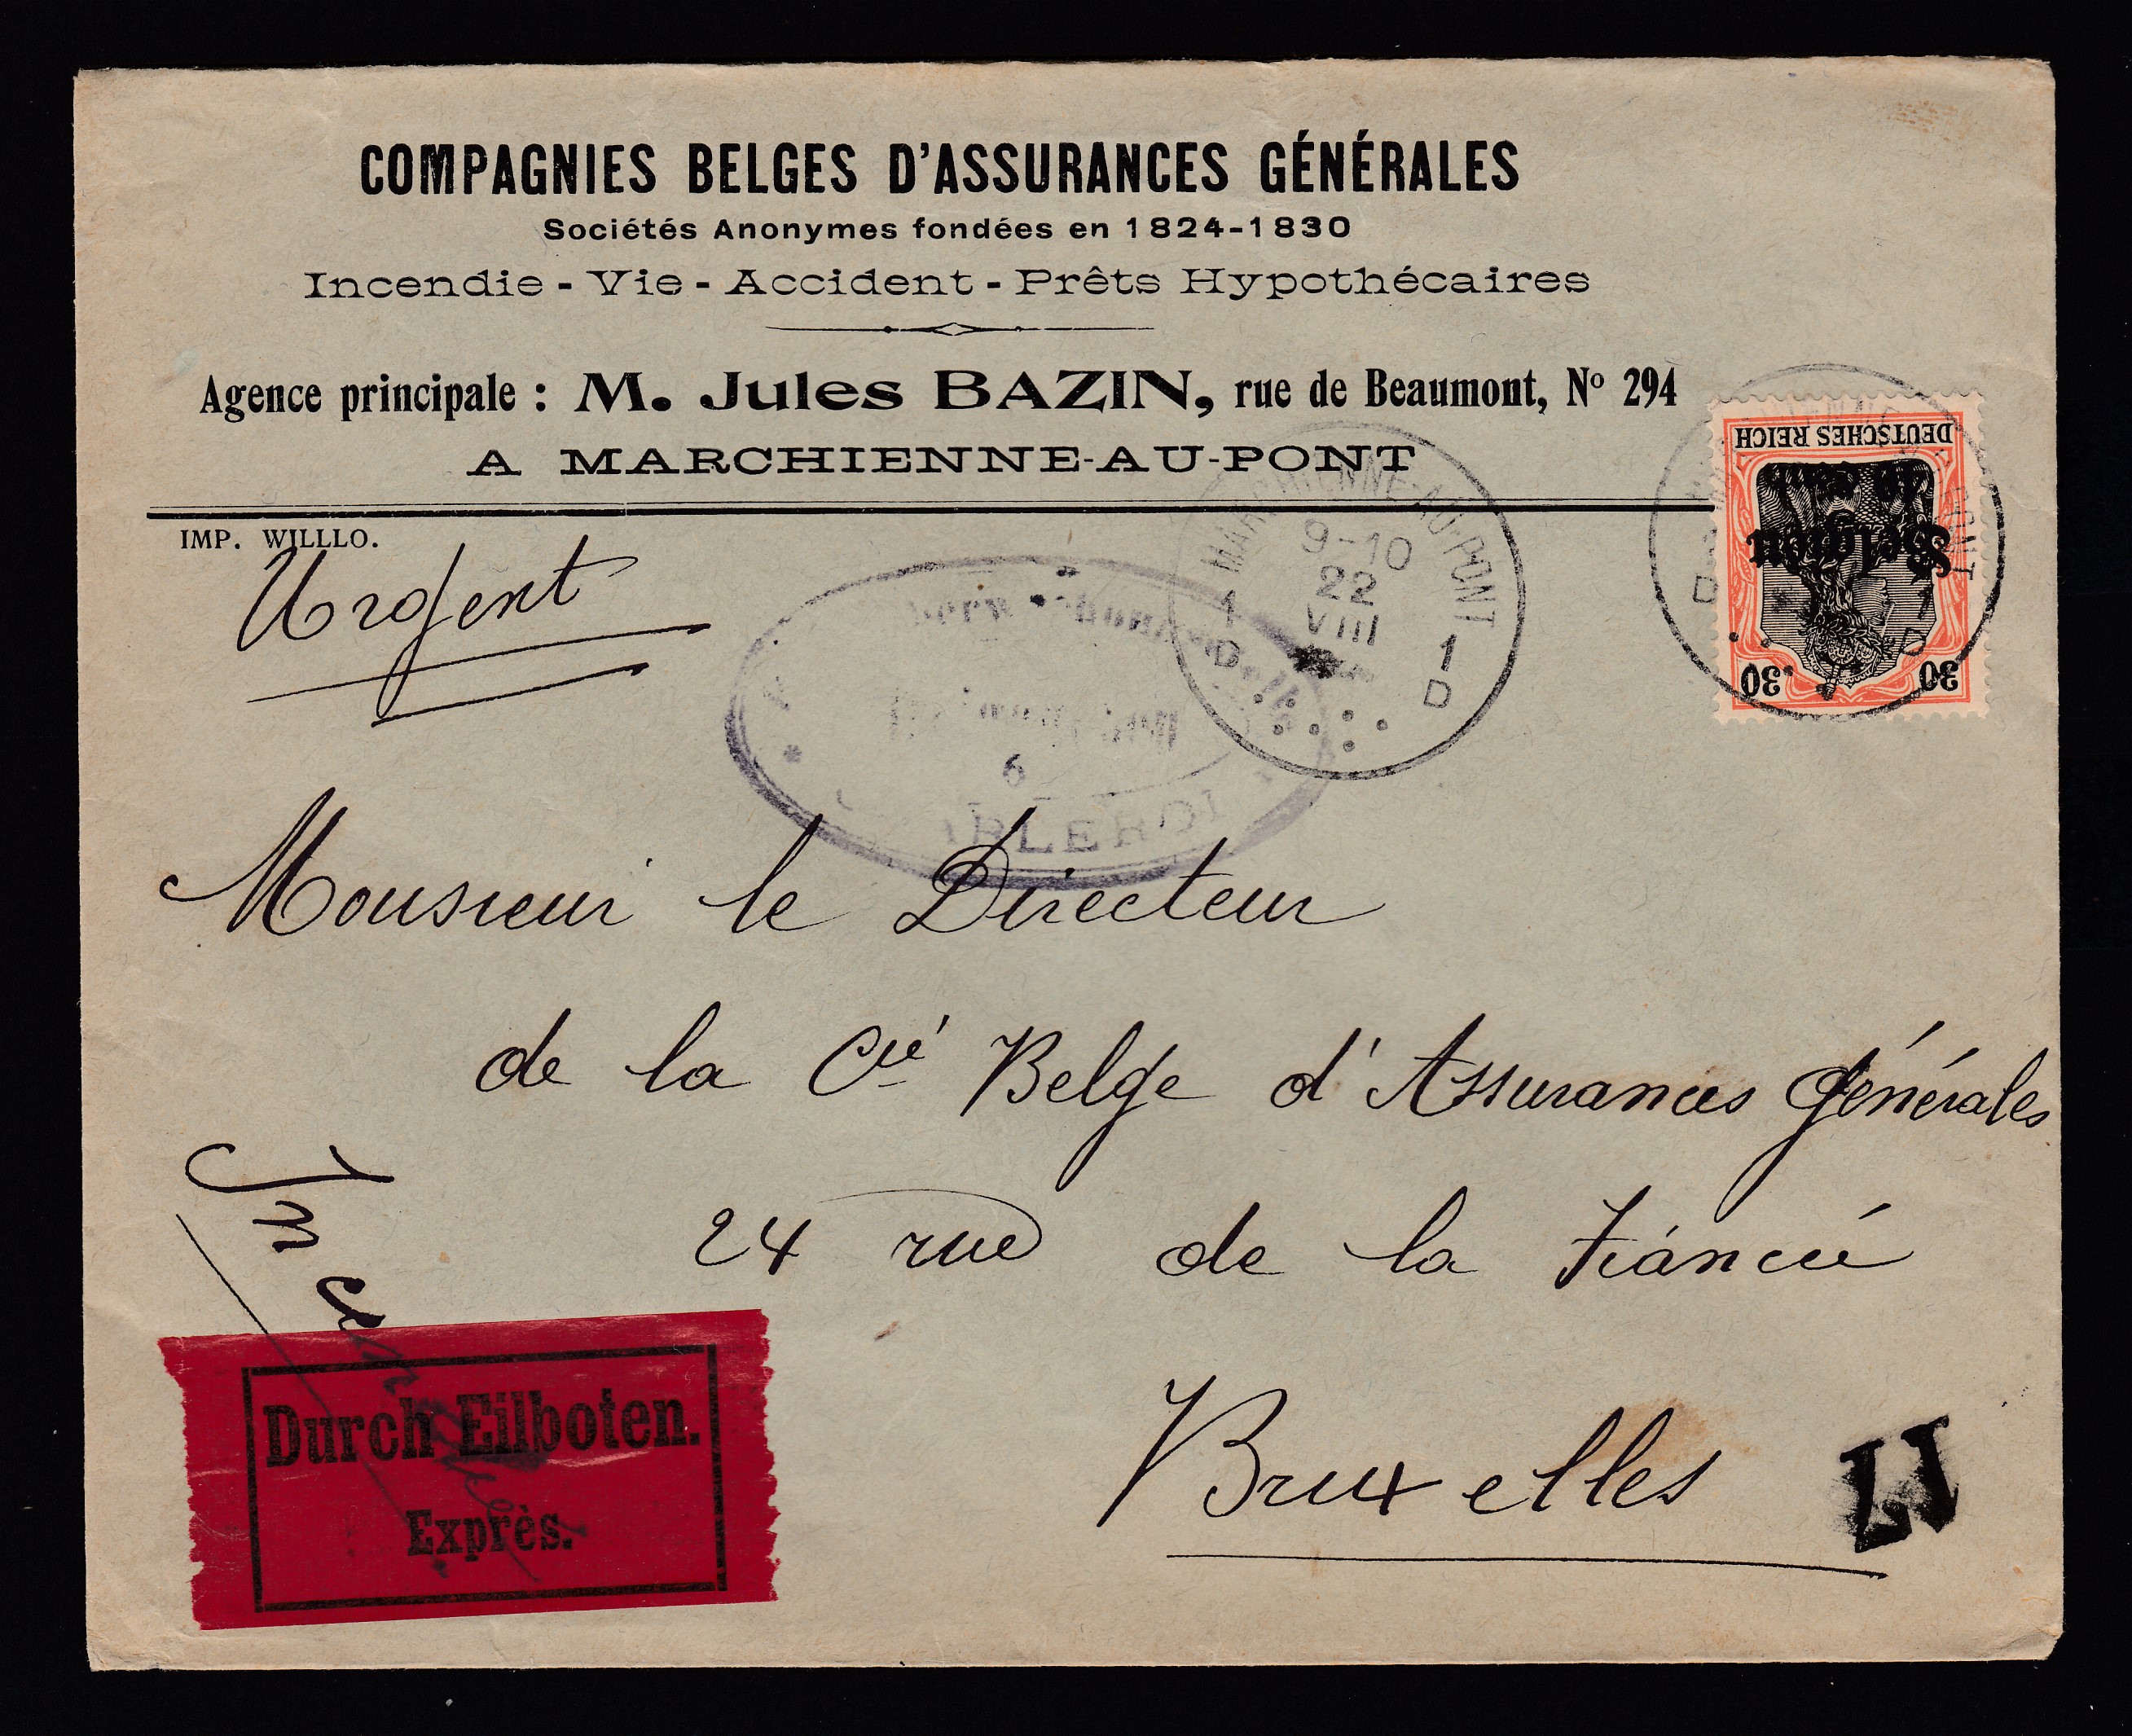 COMPAGNIES BELGES D'ASSURANCES GÉNÉRALES
Sociétés Anonymes fondées en 1824-1830
Incendie - Vie - Accident - Prêts Hypothécaires
Agence principale : M. Jules BAZIN, rue de Beaumont, Nº 294
A MARCHIENNE-AU-PONT
IMP. WILLLO.
DEUTSCHES REICH
Belgien
30 30
MARCHIENNE-AU-PONT
9-10
22
VIII
1 1
D D
Urgent
6
Monsieur le Directeur
de la Cié Belge d'Assurances Générales
24 rue de la Fiancée
Bruxelles
Durch Eilboten.
Exprès.